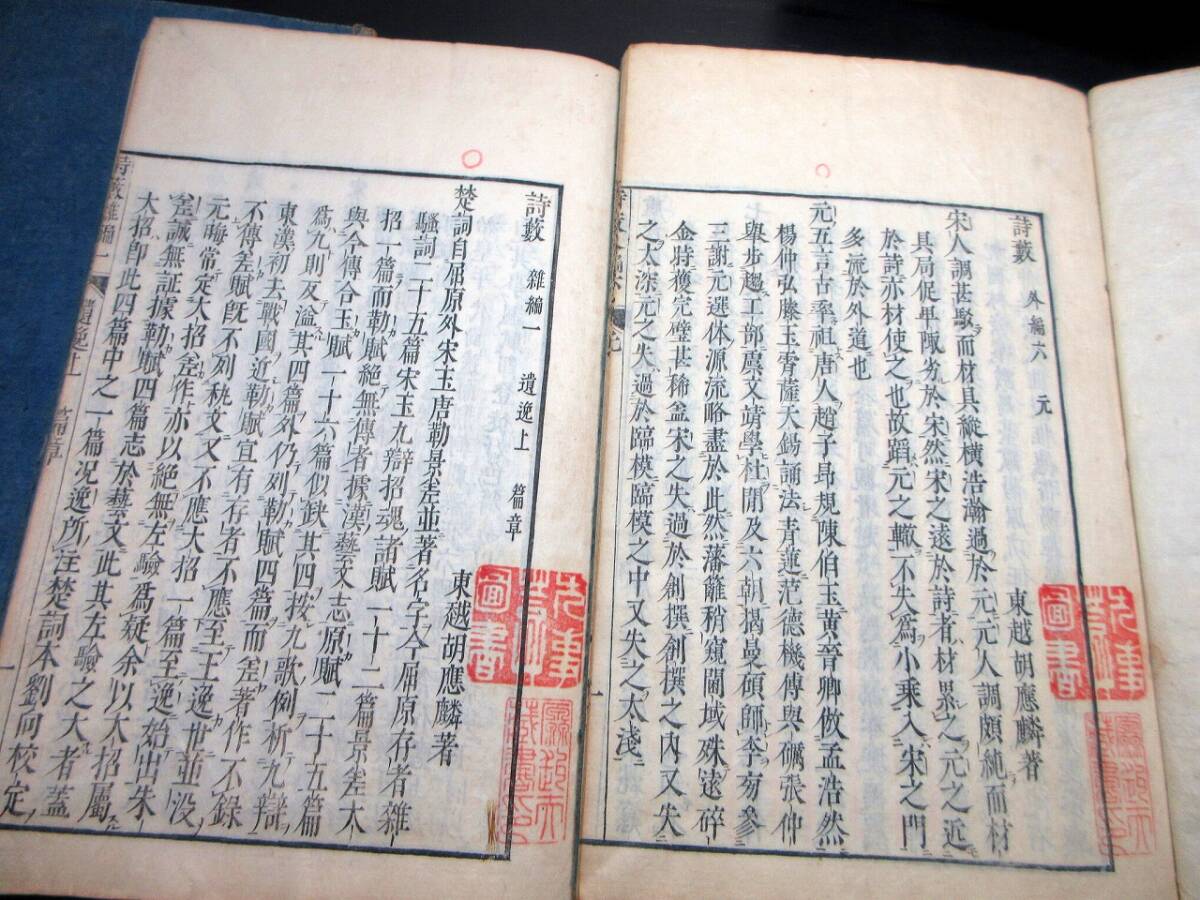 詩藪 外編六 元
東越胡應麟著
宋人調甚駁而材具縱橫浩瀚過於元元人調頗純而材
具局促卑陬劣於宋然宋之遠於詩者材累之元之近
於詩亦材使之也故蹈元之轍不失爲小乘入宋之門
多流於外道也
元五言古率祖唐人趙子昂規陳伯玉黃晉卿倣孟浩然
楊仲弘滕玉霄薩天錫誦法青蓮范德機傅與礪張仲
舉步趨工部虞文靖學杜間及六朝揭曼碩師李旁參
三謝元選體源流略盡於此然藩籬稍窺閫域殊遠碎
金時獲完璧甚稀盖宋之失過於創撰創撰之內又失
之太深元之失過於臨模臨模之中又失之太淺
圖書
詩藪 雜編一 遺逸上 篇章
東越胡應麟著
楚詞自屈原外宋玉唐勒景差並著名字今屈原存者雜
騷詞二十五篇宋玉九辯招魂諸賦一十二篇景差大
招一篇而勒賦絕無傳者據漢藝文志原賦二十五篇
與今傳合玉賦一十六篇似缺其四按九歌例析九辯
爲九則反溢其四篇外仍列勒賦四篇而差著作不錄
東漢初去戰國近勒賦宜有存者不應至王逸世並沒
不傳差賦旣不列秇文又不應大招一篇至逸始出朱
元晦常定大招差作亦以絕無左驗爲疑余以大招屬
差誠無証據勒賦四篇志於藝文此其左驗之大者蓋
大招卽此四篇中之一篇况逸所注楚詞本劉向校定
詩藪雜編一 遺逸上 篇章 一
圖書